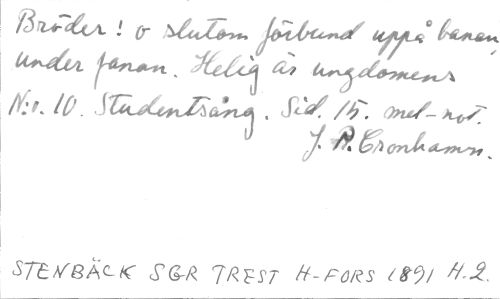 Bröder! o slutom förbund uppå banan,
under fanan. Helig är ungdomens
N:o. 10. Studentsång. Sid. 15. mel-not.
J. P. Cronhamn.
STENBÄCK SGR TREST H-FORS 1891 H.2.